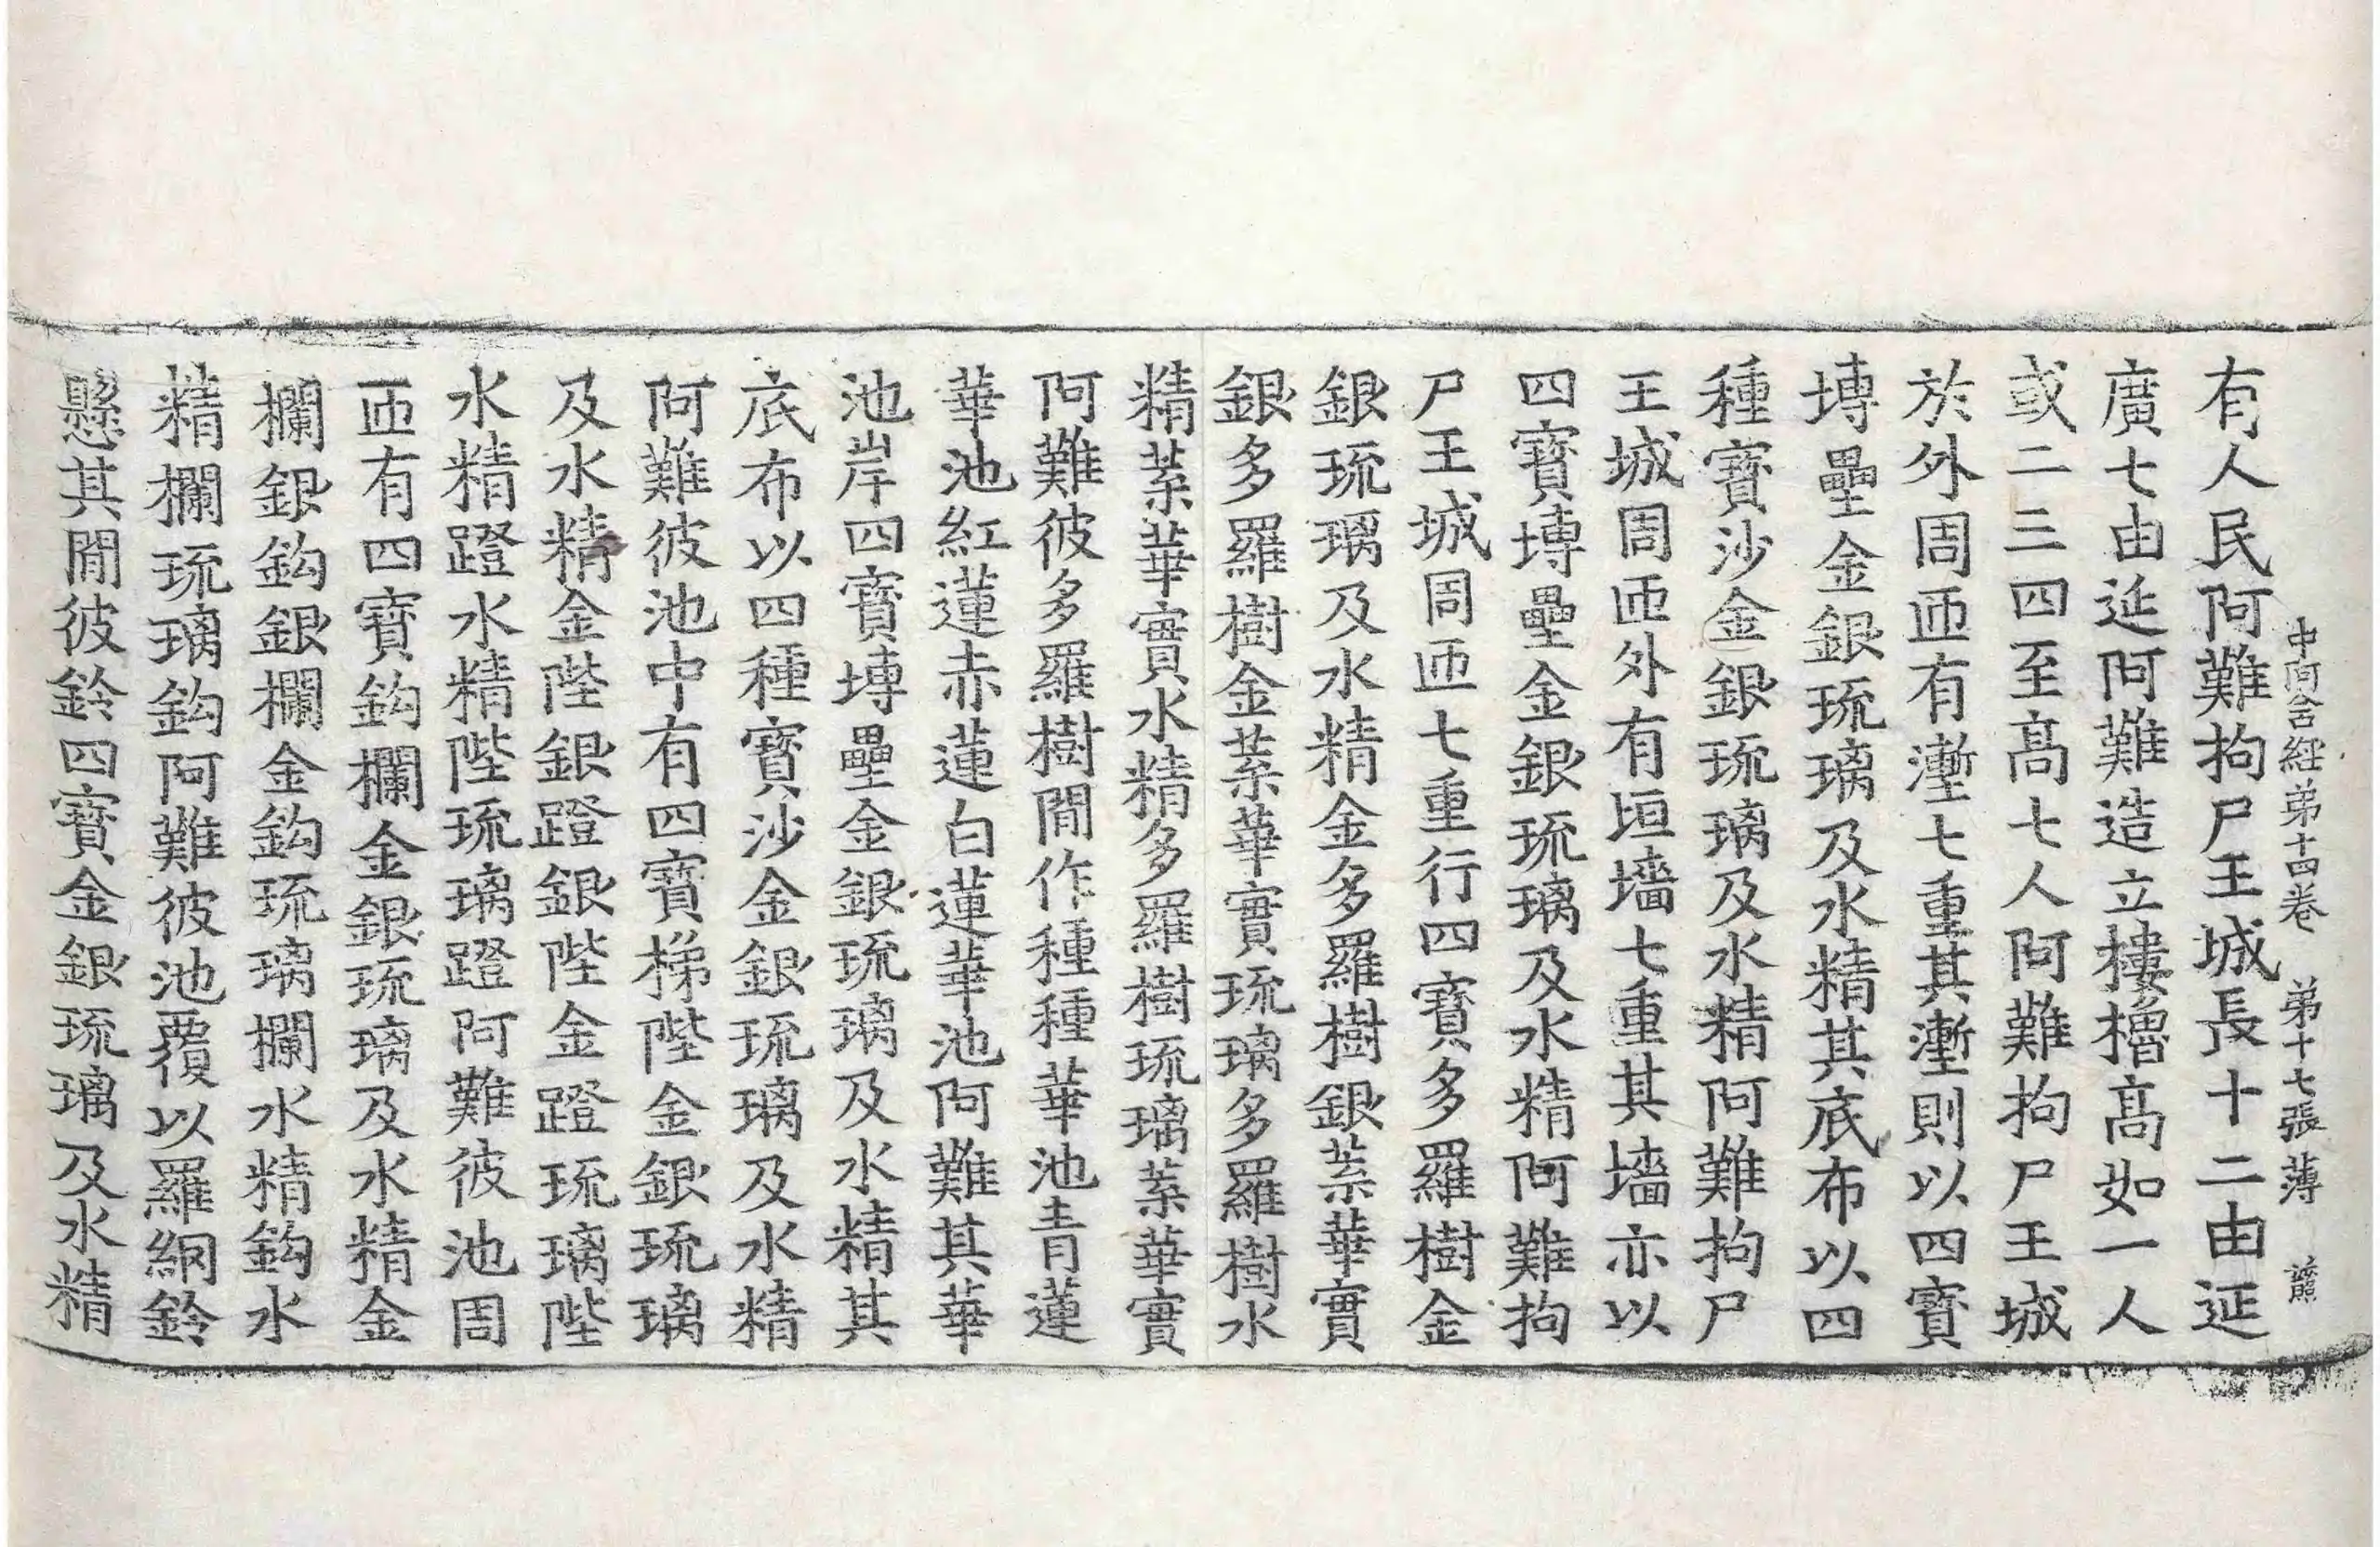 中阿含經弟十四卷 弟十七張 薄
有人民阿難拘尸王城長十二由延
廣七由延阿難造立樓櫓髙如一人
或二三四至髙七人阿難拘尸王城
於外周迊有壍七重其壍則以四寳
塼壘金銀琉璃及水精其底布以四
種寳沙金銀琉璃及水精阿難拘尸
王城周迊外有垣墻七重其墻亦以
四寳塼壘金銀琉璃及水精阿難拘
尸王城周迊七重行四寳多羅樹金
銀琉璃及水精金多羅樹銀葉華實
銀多羅樹金葉華實琉璃多羅樹水
精葉華實水精多羅樹琉璃葉華實
阿難彼多羅樹間作種種華池青蓮
華池紅蓮赤蓮白蓮華池阿難其華
池岸四寳塼壘金銀琉璃及水精其
底布以四種寳沙金銀琉璃及水精
阿難彼池中有四寳梯陛金銀琉璃
及水精金陛銀蹬銀陛金蹬琉璃陛
水精蹬水精陛琉璃蹬阿難彼池周
迊有四寳鈎欄金銀琉璃及水精金
欄銀鈎銀欄金鈎琉璃欄水精鈎水
精欄琉璃鈎阿難彼池覆以羅網鈴
懸其間彼鈴四寳金銀琉璃及水精